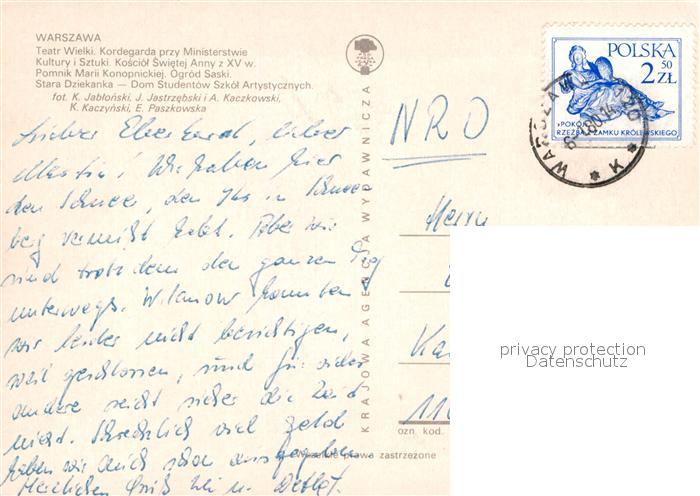 WARSZAWA
Teatr Wielki. Kordegarda przy Ministerstwie
Kultury i Sztuki. Kościół Świętej Anny z XV w.
Pomnik Marii Konopnickiej. Ogród Saski.
Stara Dziekanka — Dom Studentów Szkół Artystycznych.
fot. K. Jabłoński, J. Jastrzębski i A. Kaczkowski,
K. Kaczyński, E. Paszkowska
Lieber Eberhard, lieber
Martin! Wir haben hier
den Schnee, den Ihr in Schnee
berg vermißt habt. Aber wir
sind trotzdem den ganzen Tag
unterwegs. Wilanow konnten
wir leider nicht besichtigen,
weil geschlossen, und für vieles
andere reicht sicher die Zeit
nicht. Schrecklich viel Geld
haben wir auch schon ausgegeben.
Herzlichen Gruß Uli u. Detlef.
KRAJOWA AGENCJA WYDAWNICZA
NRD
Herrn
Ka
110
ozn. kod.
Wszelkie prawa zastrzeżone
POLSKA
2 50 ZŁ
»POKÓJ«
RZEŹBA Z ZAMKU KRÓLEWSKIEGO
WARSZAWA
* K *
privacy protection
Datenschutz